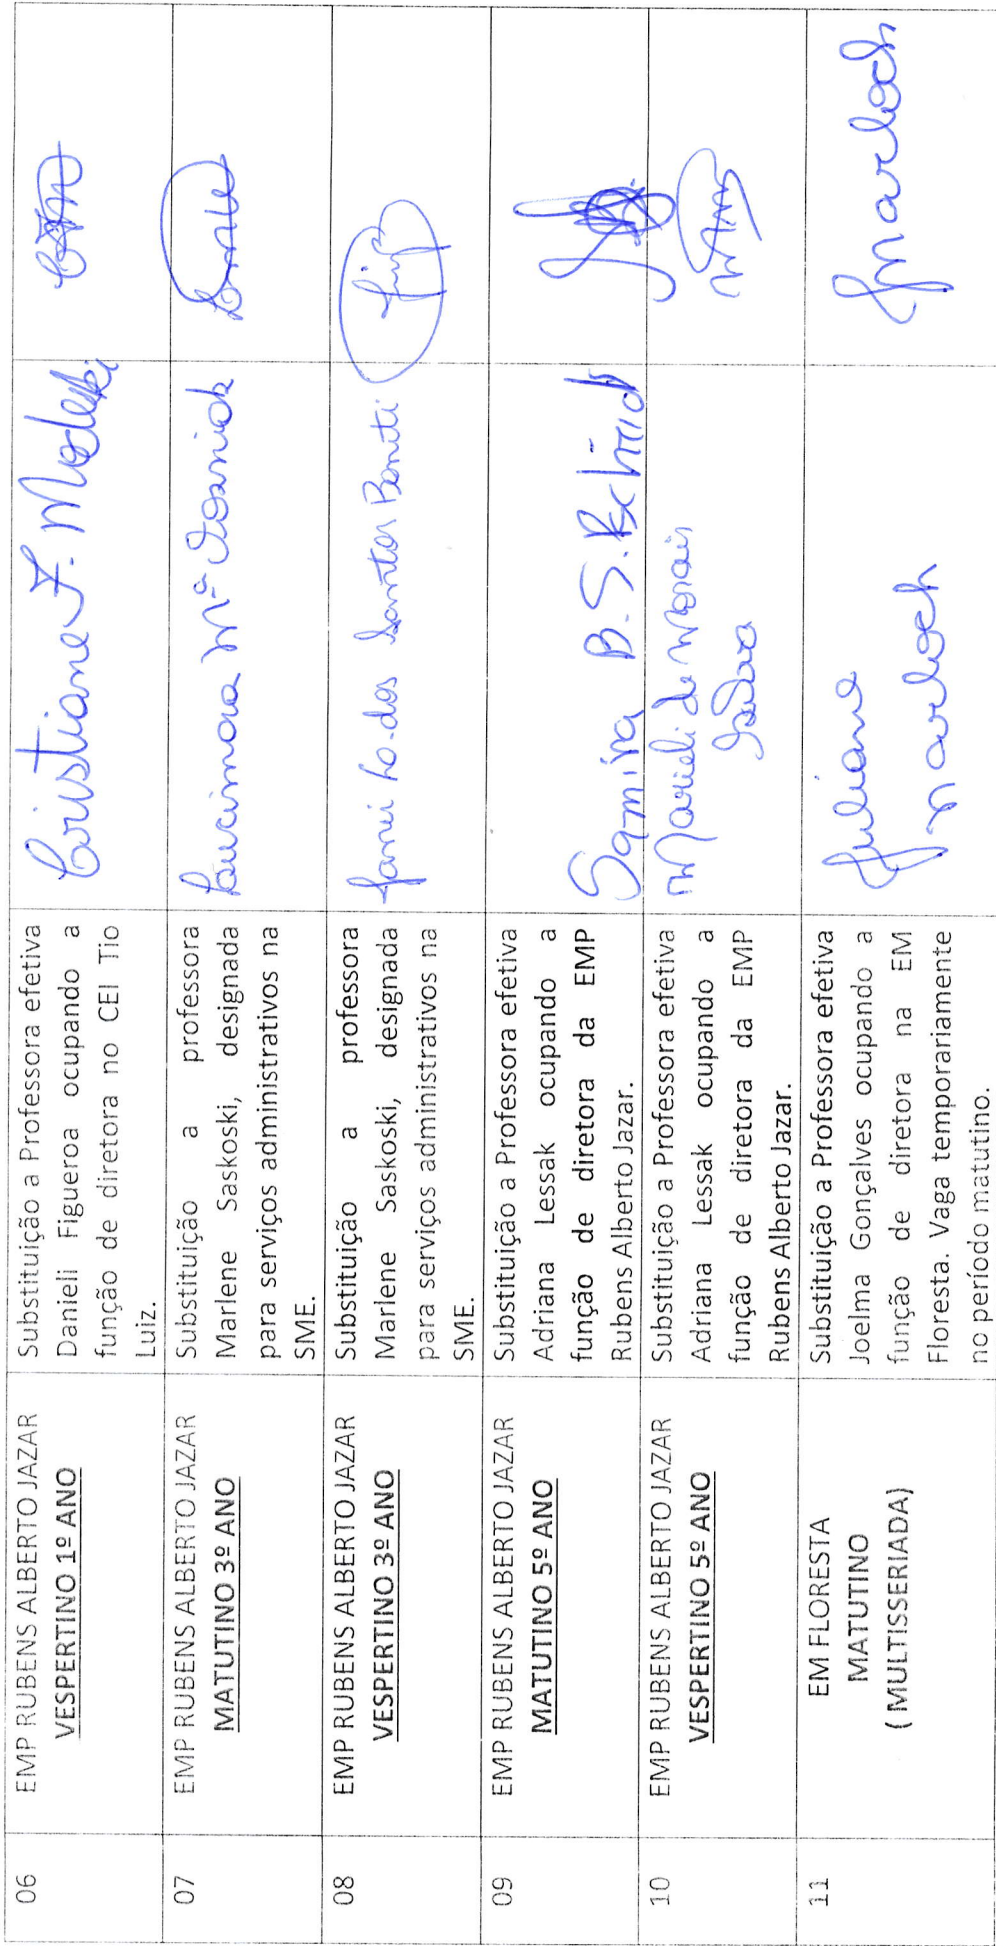 06
EMP RUBENS ALBERTO JAZAR
VESPERTINO 1º ANO
Substituição a Professora efetiva
Danieli Figueroa ocupando a
função de diretora no CEI Tio
Luiz.
Cristiane F. Modeski
07
EMP RUBENS ALBERTO JAZAR
MATUTINO 3º ANO
Substituição a professora
Marlene Saskoski, designada
para serviços administrativos na
SME.
Lucimara Mª
08
EMP RUBENS ALBERTO JAZAR
VESPERTINO 3º ANO
Substituição a professora
Marlene Saskoski, designada
para serviços administrativos na
SME.
dos Santos
09
EMP RUBENS ALBERTO JAZAR
MATUTINO 5º ANO
Substituição a Professora efetiva
Adriana Lessak ocupando a
função de diretora da EMP
Rubens Alberto Jazar.
Samira B. S.
10
EMP RUBENS ALBERTO JAZAR
VESPERTINO 5º ANO
Substituição a Professora efetiva
Adriana Lessak ocupando a
função de diretora da EMP
Rubens Alberto Jazar.
Marieli de Morais
11
EM FLORESTA
MATUTINO
( MULTISSERIADA)
Substituição a Professora efetiva
Joelma Gonçalves ocupando a
função de diretora na EM
Floresta. Vaga temporariamente
no período matutino.
Juliane
Marloch
Jmarloch